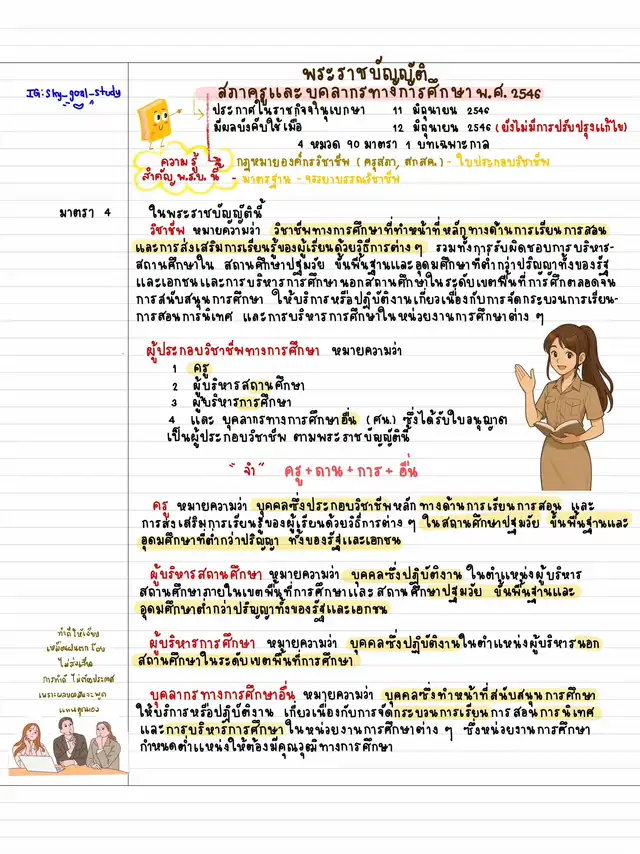 พระราชบัญญัติ
สภาครูและบุคลากรทางการศึกษา พ.ศ. 2546
IG:sky_goal_study
ประกาศในราชกิจจานุเบกษา 11 มิถุนายน 2546
มีผลบังคับใช้เมื่อ 12 มิถุนายน 2546 (ยังไม่มีการปรับปรุงแก้ไข)
4 หมวด 90 มาตรา 1 บทเฉพาะกาล
ความรู้
สำคัญ พ.ร.บ. นี้
กฎหมายองค์กรวิชาชีพ (คุรุสภา, สกสค.) - ใบประกอบวิชาชีพ
- มาตรฐาน - จรรยาบรรณวิชาชีพ
มาตรา 4 ในพระราชบัญญัตินี้
วิชาชีพ หมายความว่า วิชาชีพทางการศึกษาที่ทำหน้าที่หลักทางด้านการเรียนการสอน
และการส่งเสริมการเรียนรู้ของผู้เรียนด้วยวิธีการต่างๆ รวมทั้งการรับผิดชอบการบริหาร-
สถานศึกษาใน สถานศึกษาปฐมวัย ขั้นพื้นฐานและอุดมศึกษาที่ต่ำกว่าปริญญาทั้งของรัฐ
และเอกชนและการบริหารการศึกษานอกสถานศึกษาในระดับเขตพื้นที่การศึกตลอดจน
การสนับสนุนการศึกษา ให้บริการหรือปฏิบัติงานเกี่ยวเนื่องกับการจัดกระบวนการเรียน-
การสอนการนิเทศ และการบริหารการศึกษาในหน่วยงานการศึกษาต่าง ๆ
ผู้ประกอบวิชาชีพทางการศึกษา หมายความว่า
1 ครู
2 ผู้บริหารสถานศึกษา
3 ผู้บริหารการศึกษา
4 และ บุคลากรทางการศึกษาอื่น (ศน.) ซึ่งได้รับใบอนุญาต
เป็นผู้ประกอบวิชาชีพ ตามพระราชบัญญัตินี้
"จำ" ครู + ถาน + การ + อื่น
ครู หมายความว่า บุคคลซึ่งประกอบวิชาชีพหลักทางด้านการเรียนการสอน และ
การส่งเสริมการเรียนรู้ของผู้เรียนด้วยวิธีการต่าง ๆ ในสถานศึกษาปฐมวัย ขั้นพื้นฐานและ
อุดมศึกษาที่ต่ำกว่าปริญญา ทั้งของรัฐและเอกชน
ผู้บริหารสถานศึกษา หมายความว่า บุคคลซึ่งปฏิบัติงาน ในตำแหน่งผู้บริหาร
สถานศึกษาภายในเขตพื้นที่การศึกษาและสถานศึกษาปฐมวัย ขั้นพื้นฐานและ
อุดมศึกษาต่ำกว่าปริญญาทั้งของรัฐและเอกชน
ผู้บริหารการศึกษา หมายความว่า บุคคลซึ่งปฏิบัติงานในตำแหน่งผู้บริหารนอก
สถานศึกษาในระดับเขตพื้นที่การศึกษา
บุคลากรทางการศึกษาอื่น หมายความว่า บุคคลซึ่งทำหน้าที่สนับสนุนการศึกษา
ให้บริการหรือปฏิบัติงาน เกี่ยวเนื่องกับการจัดกระบวนการเรียนการสอนการนิเทศ
และการบริหารการศึกษาในหน่วยงานการศึกษาต่าง ๆ ซึ่งหน่วยงานการศึกษา
กำหนดตำแหน่งให้ต้องมีคุณวุฒิทางการศึกษา
ทำดีให้เงียบ
เหมือนฝนตกโดย
ไม่ส่งเสียง
การทำดี ไม่ต้องประกาศ
เพราะผลของมันจะพูด
แทนคุณเอง